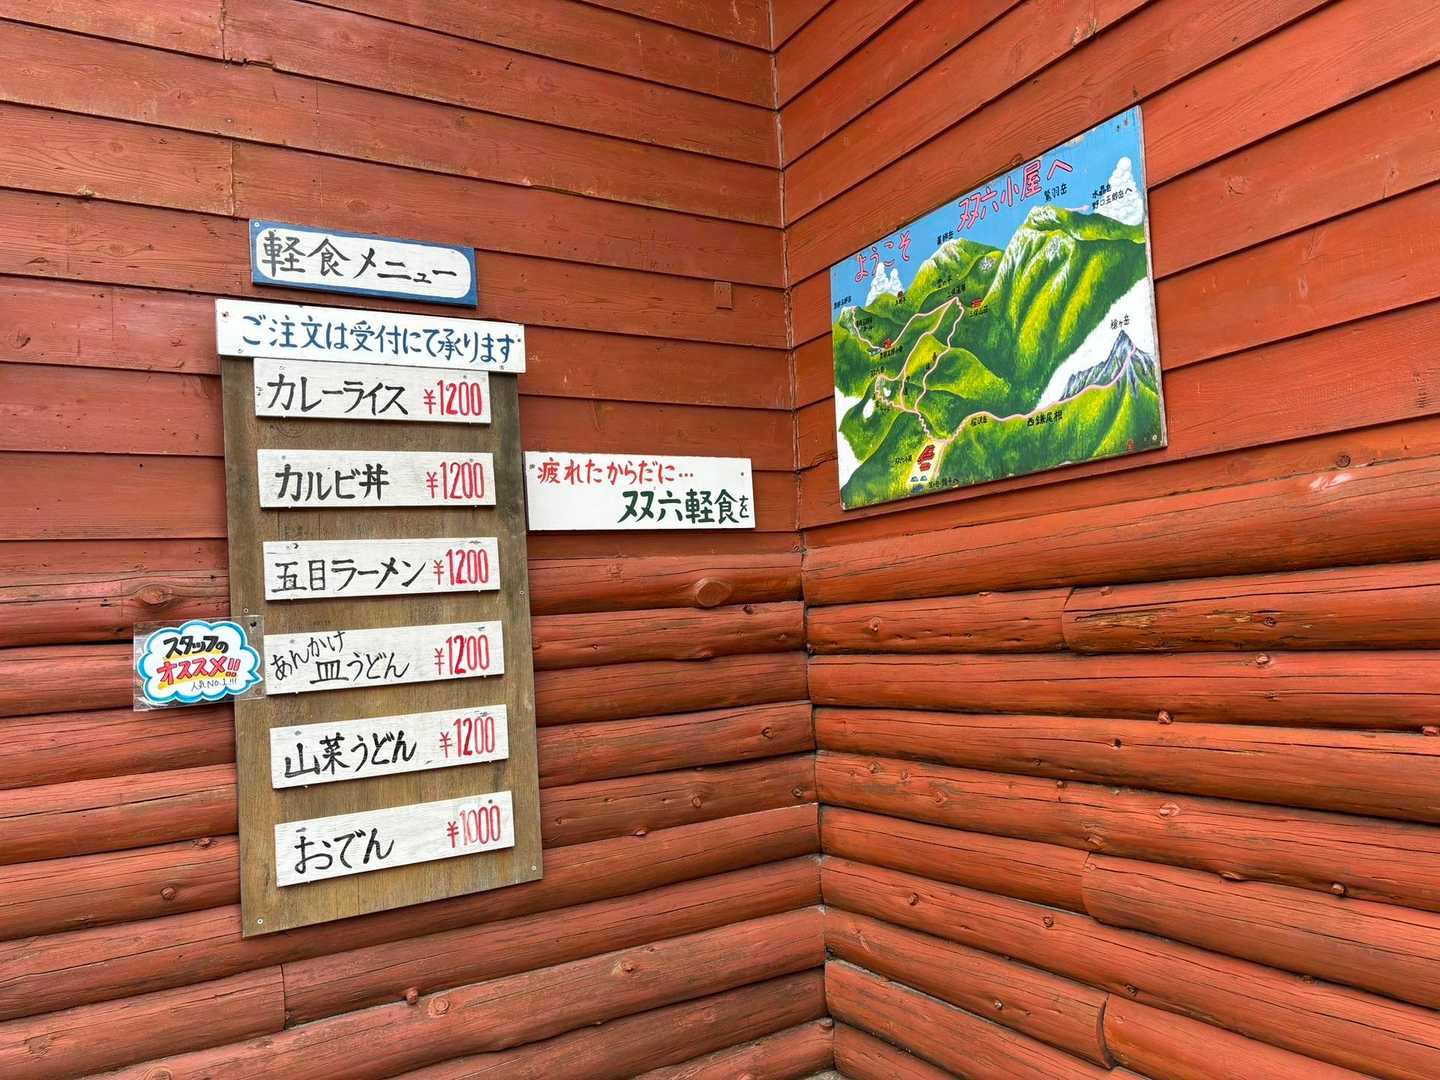 軽食メニュー
ご注文は受付にて承ります
カレーライス ¥1200
カルビ丼 ¥1200
五目ラーメン ¥1200
あんかけ
皿うどん ¥1200
スタッフの
オススメ!!
人気NO.1!!!
山菜うどん ¥1200
おでん ¥1000
疲れたからだに…
双六軽食を
ようこそ 双六小屋へ
鷲羽岳
水晶岳
野口五郎岳へ
槍ヶ岳
西鎌尾根
樅沢岳